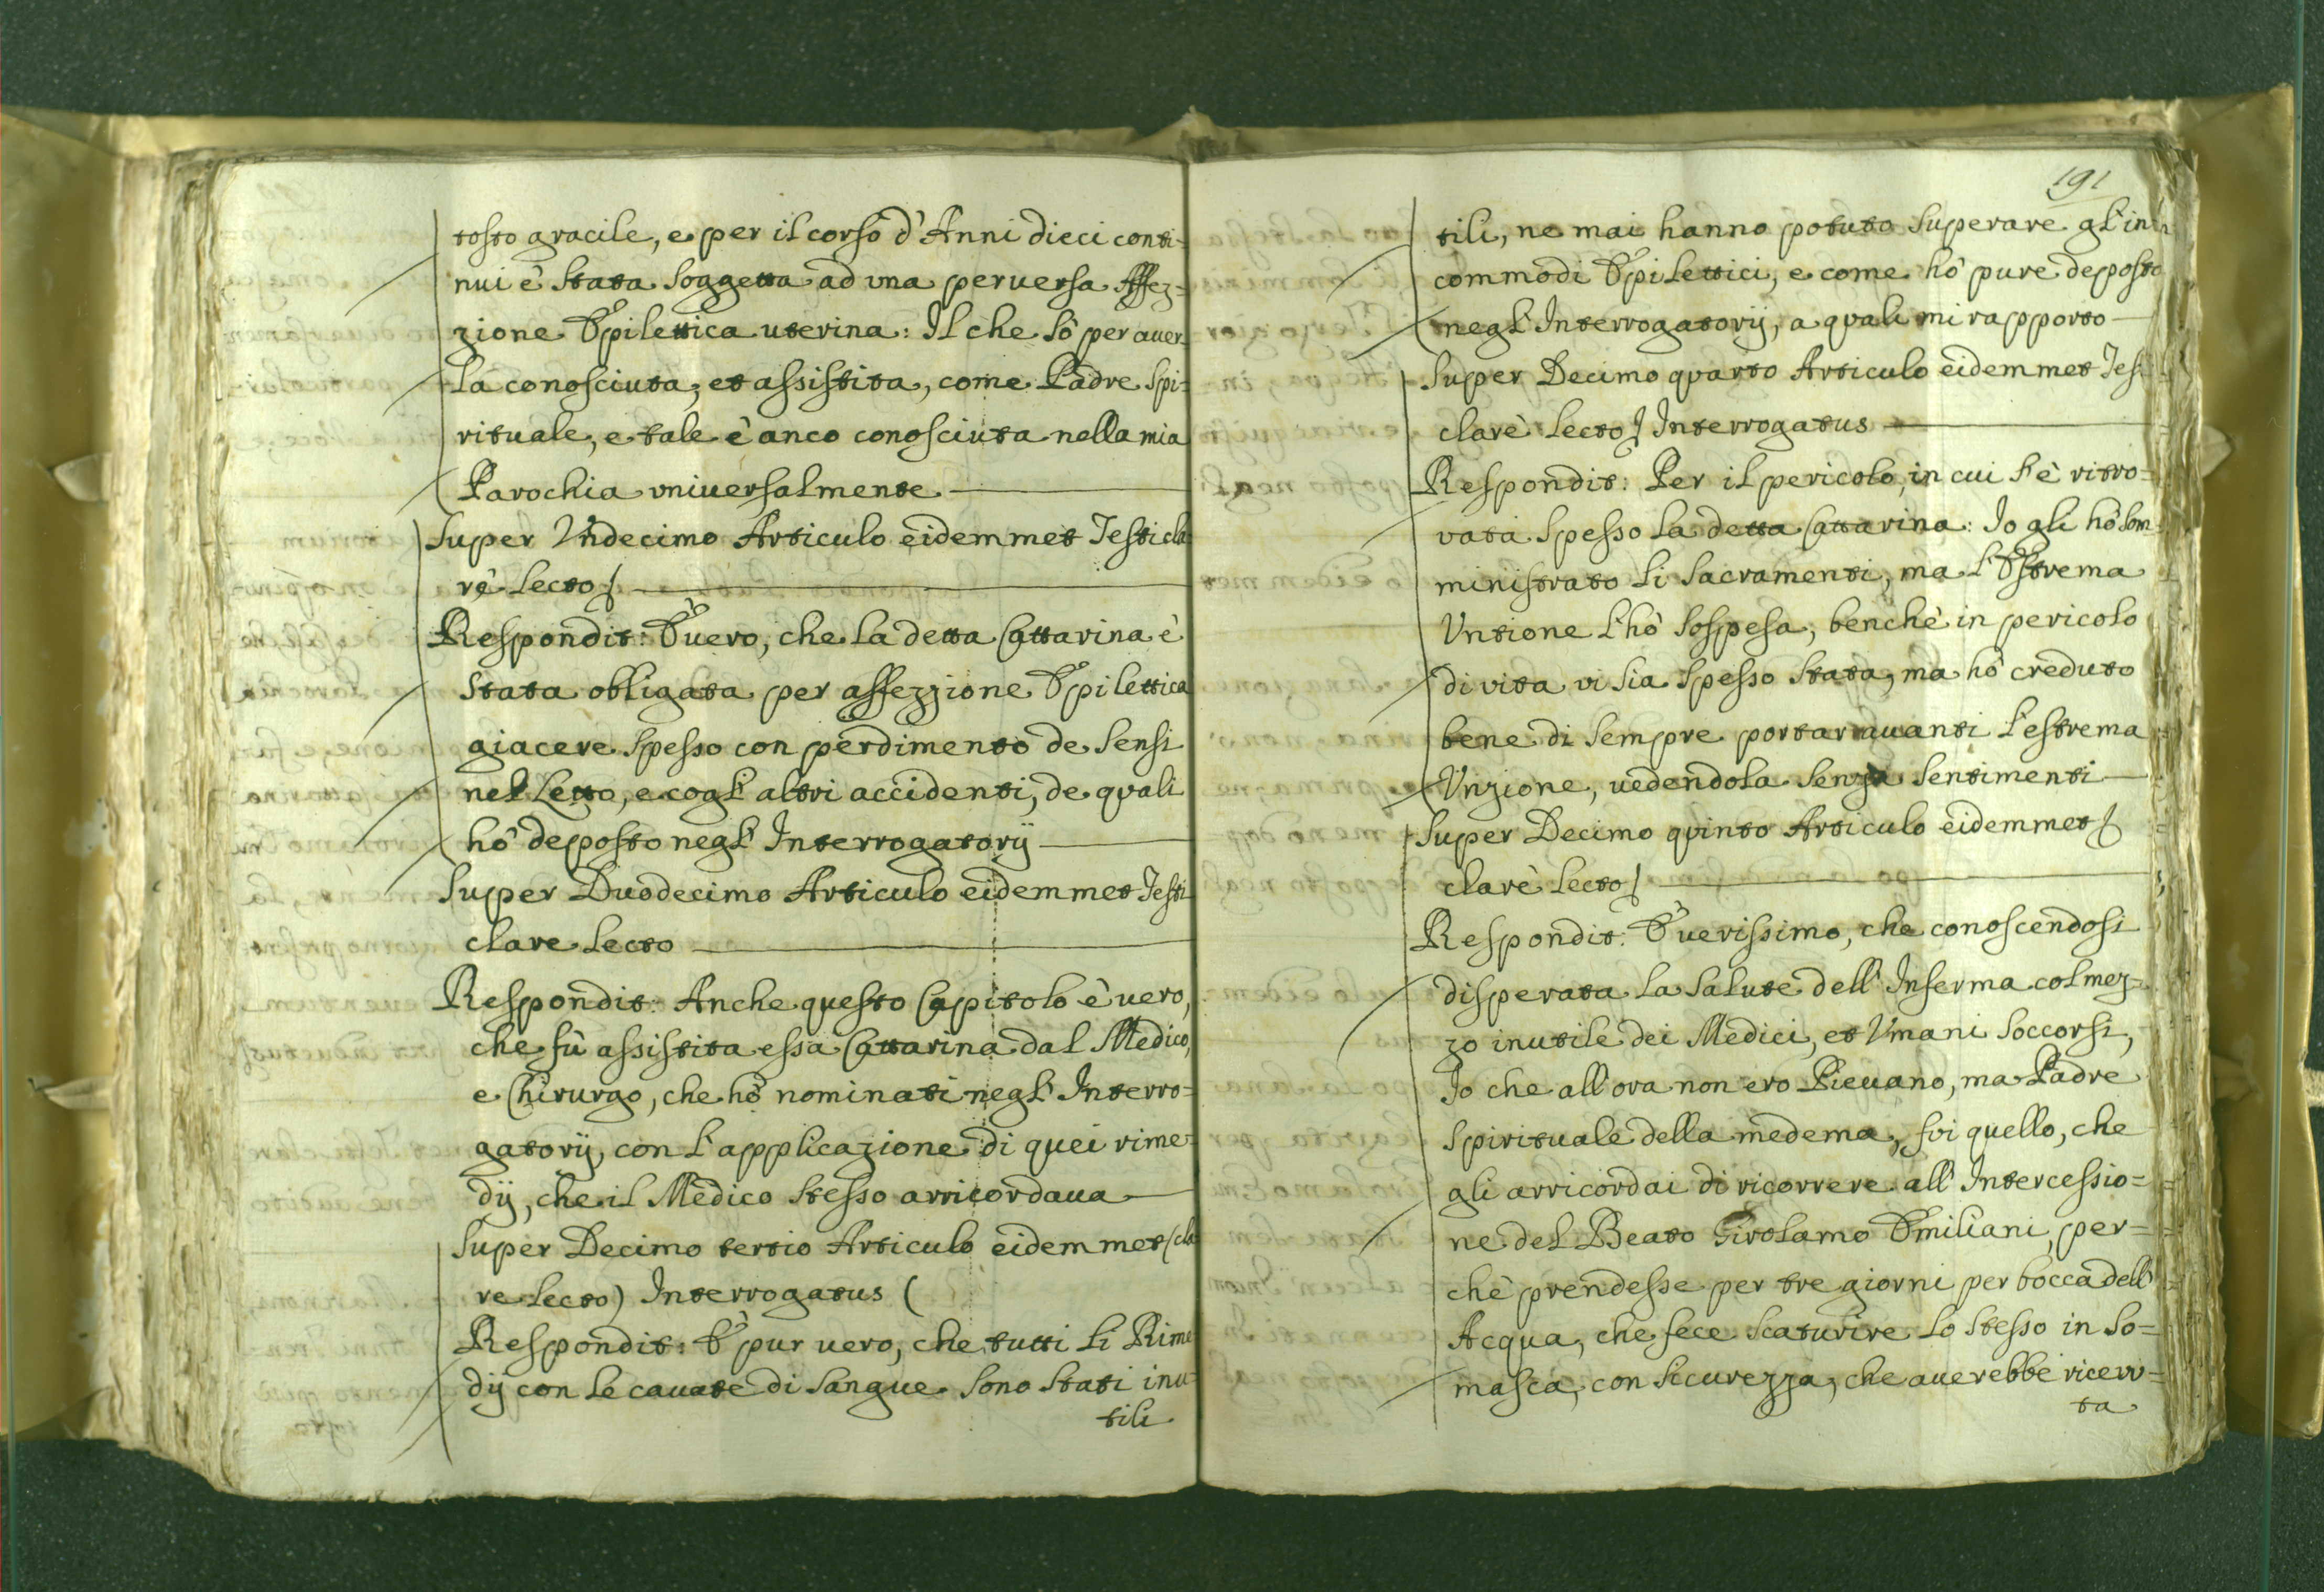 tosto gracile, e per il corso d'Anni dieci conti-
nui è stata soggetta ad una peruersa Affez=
zione Epilettica uterina: Il che sò per auer-
la conosciuta, et assistita, come Padre Spi-
rituale, e tale è anco conosciuta nella mia
Parochia uniuersalmente
Super Undecimo Articulo eidemmet Testi cla
rè Lecto)
Respondit: È uero, che la detta Cattarina è
stata obligata per affezzione Epilettica
giacere spesso con perdimento de sensi
nel Letto, e cogl'altri accidenti, de quali
hò deposto negl'Interrogatorij
Super Duodecimo Articulo eidemmet Testi
clare Lecto
Respondit: Anche questo Capitolo è uero,
che fù assistita essa Cattarina dal Medico,
e Chirurgo, che hò nominati negl'Interro=
gatorij, con l'applicazione di quei rime=
dij, che il Medico stesso arricordaua
Super Decimo tertio Articulo eidemmet (cla
re Lecto) Interrogatus (
Respondit: È pur uero, che tutti li Rime
dij con le cauate di sangue sono stati inu=
tili
191
tili, ne mai hanno potuto superare gl'in
commodi Epilettici, e come hò pure deposto
negl'Interrogatorij, a quali mi rapporto
Super Decimo quarto Articulo eidemmet Tes
clarè Lecto) Interrogatus
Respondit: Per il pericolo, in cui s'è ritro=
vata spesso la detta Cattarina: Io gli hò som
ministrato li Sacramenti, ma l'Estrema
Untione l'hò sospesa, benchè in pericolo
di vita vi sia spesso stata, ma hò creduto
bene di sempre portar auanti l'estrema
Unzione, uedendola senza sentimenti
Super Decimo quinto Articulo eidemmet)
clarè Lecto)
Respondit: È uerissimo, che conoscendosi
disperata la salute dell'Inferma col mez=
zo inutile dei Medici, et Umani soccorsi,
Io che all'ora non ero Pieuano, ma Padre
Spirituale della medema, fui quello, che
gli arricordai di ricorrere all'Intercessio=
ne del Beato Girolamo Emiliani, per=
chè prendesse per tre giorni per bocca dell'
Acqua, che fece scaturire lo stesso in So=
masca, con sicurezza, che auerebbe riceuu=
ta